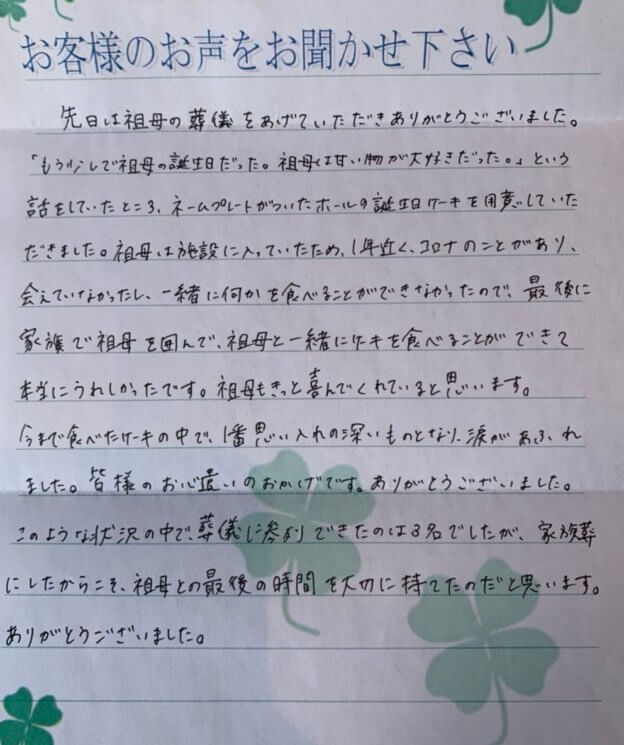 お客様のお声をお聞かせ下さい
先日は祖母の葬儀をあげていただきありがとうございました。
「もう少しで祖母の誕生日だった。祖母は甘い物が大好きだった。」という
話をしていたところ、ネームプレートがついたホールの誕生日ケーキを用意していた
だきました。祖母は施設に入っていたため、1年近く、コロナのことがあり、
会えていなかったし、一緒に何かを食べることができなかったので、最後に
家族で祖母を囲んで、祖母と一緒にケーキを食べることができて
本当にうれしかったです。祖母もきっと喜んでくれていると思います。
今まで食べたケーキの中で、1番思い入れの深いものとなり、涙があふれ
ました。皆様のお心遣いのおかげです。ありがとうございました。
このような状況の中で、葬儀に参列できたのは8名でしたが、家族葬
にしたからこそ、祖母との最後の時間を大切に持てたのだと思います。
ありがとうございました。